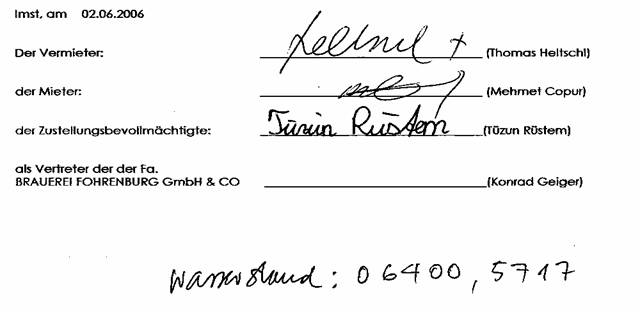 Imst, am 02.06.2006
Der Vermieter: (Thomas Heltschl)
der Mieter: (Mehmet Copur)
der Zustellungsbevollmächtigte: Tüzün Rüstem (Tüzun Rüstem)
als Vertreter der der Fa.
BRAUEREI FOHRENBURG GmbH & CO (Konrad Geiger)
Wasserstand: 06400,5717